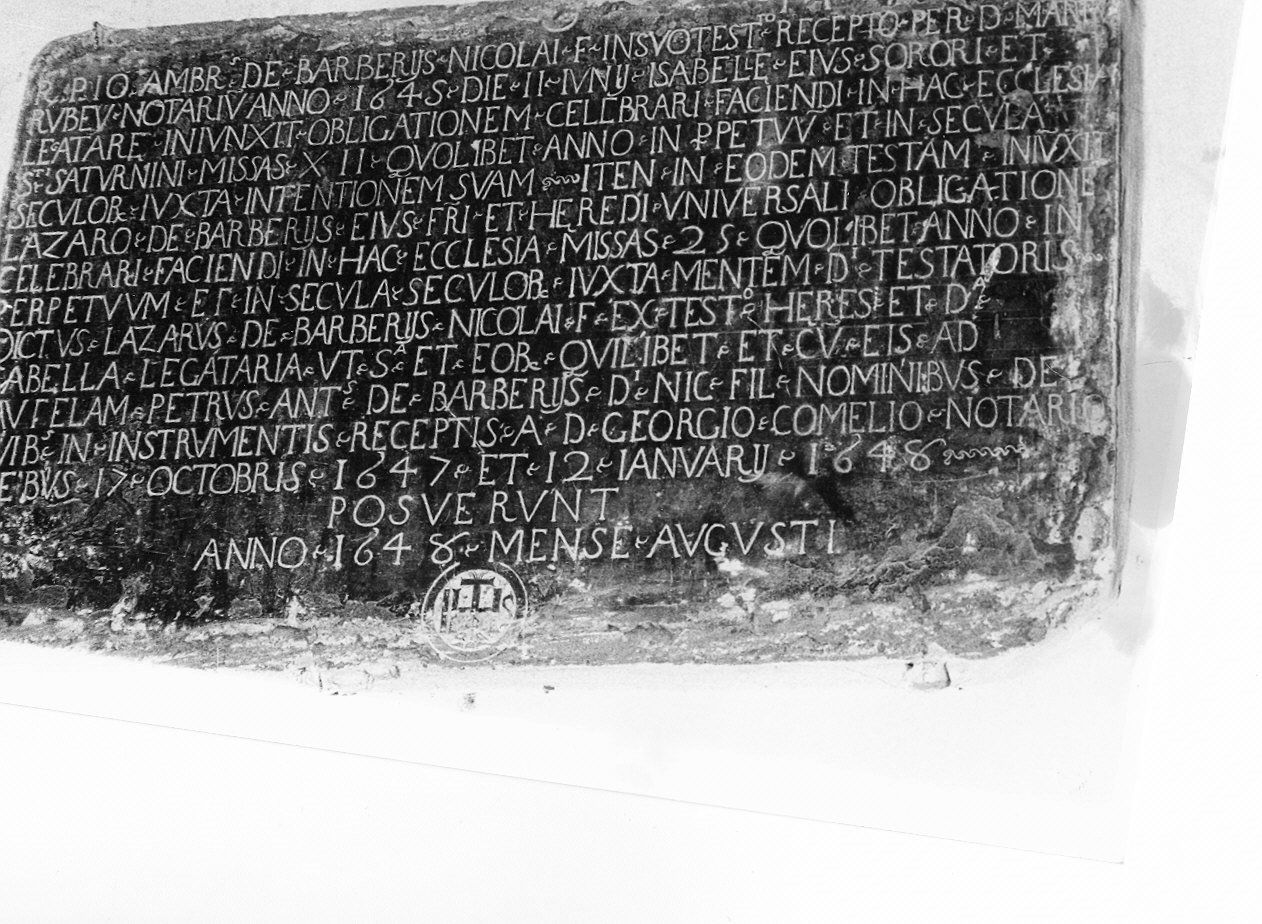 R.P.IO.AMBR.S DE BARBERIJS NICOLAI F. IN SVO TEST.O RECEPTO PER D. MARM
RVBEV NOTARIV ANNO 1645 DIE II IVNIJ ISABELLE EIVS SORORI ET
LEATARE INIVNXIT OBLIGATIONEM CELEBRARI FACIENDI IN HAC ECCLESIA
S.TI SATVRNINI MISSAS XII QVOLIBET ANNO IN PPETVV ET IN SECVLA
SECVLOR IVXTA INTENTIONEM SVAM ITEN IN EODEM TESTAM INIVXIT
LAZARO DE BARBERIJS EIVS FRI ET HEREDI VNIVERSALI OBLIGATIONE
CELEBRARI FACIENDI IN HAC ECCLESIA MISSAS 25 QVOLIBET ANNO IN
PERPETVVM ET IN SECVLA SECVLOR IVXTA MENTEM D. TESTATORIS
DICTVS LAZARVS DE BARBERIJS NICOLAI F. EX TEST.O HERES ET D.A
ABELLA LEGATARIA VT S.A ET EOR QVILIBET ET CV EIS AD
AVTELAM PETRVS ANT.S DE BARBERIJS D. NIC FIL NOMINIBVS DE
VIB.S IN INSTRVMENTIS RECEPTIS A D. GEORGIO COMELIO NOTARIO
EBVS 17 OCTOBRIS 1647 ET 12 IANVARIJ 1648
POSVERVNT
ANNO 1648 MENSE AVGVSTI